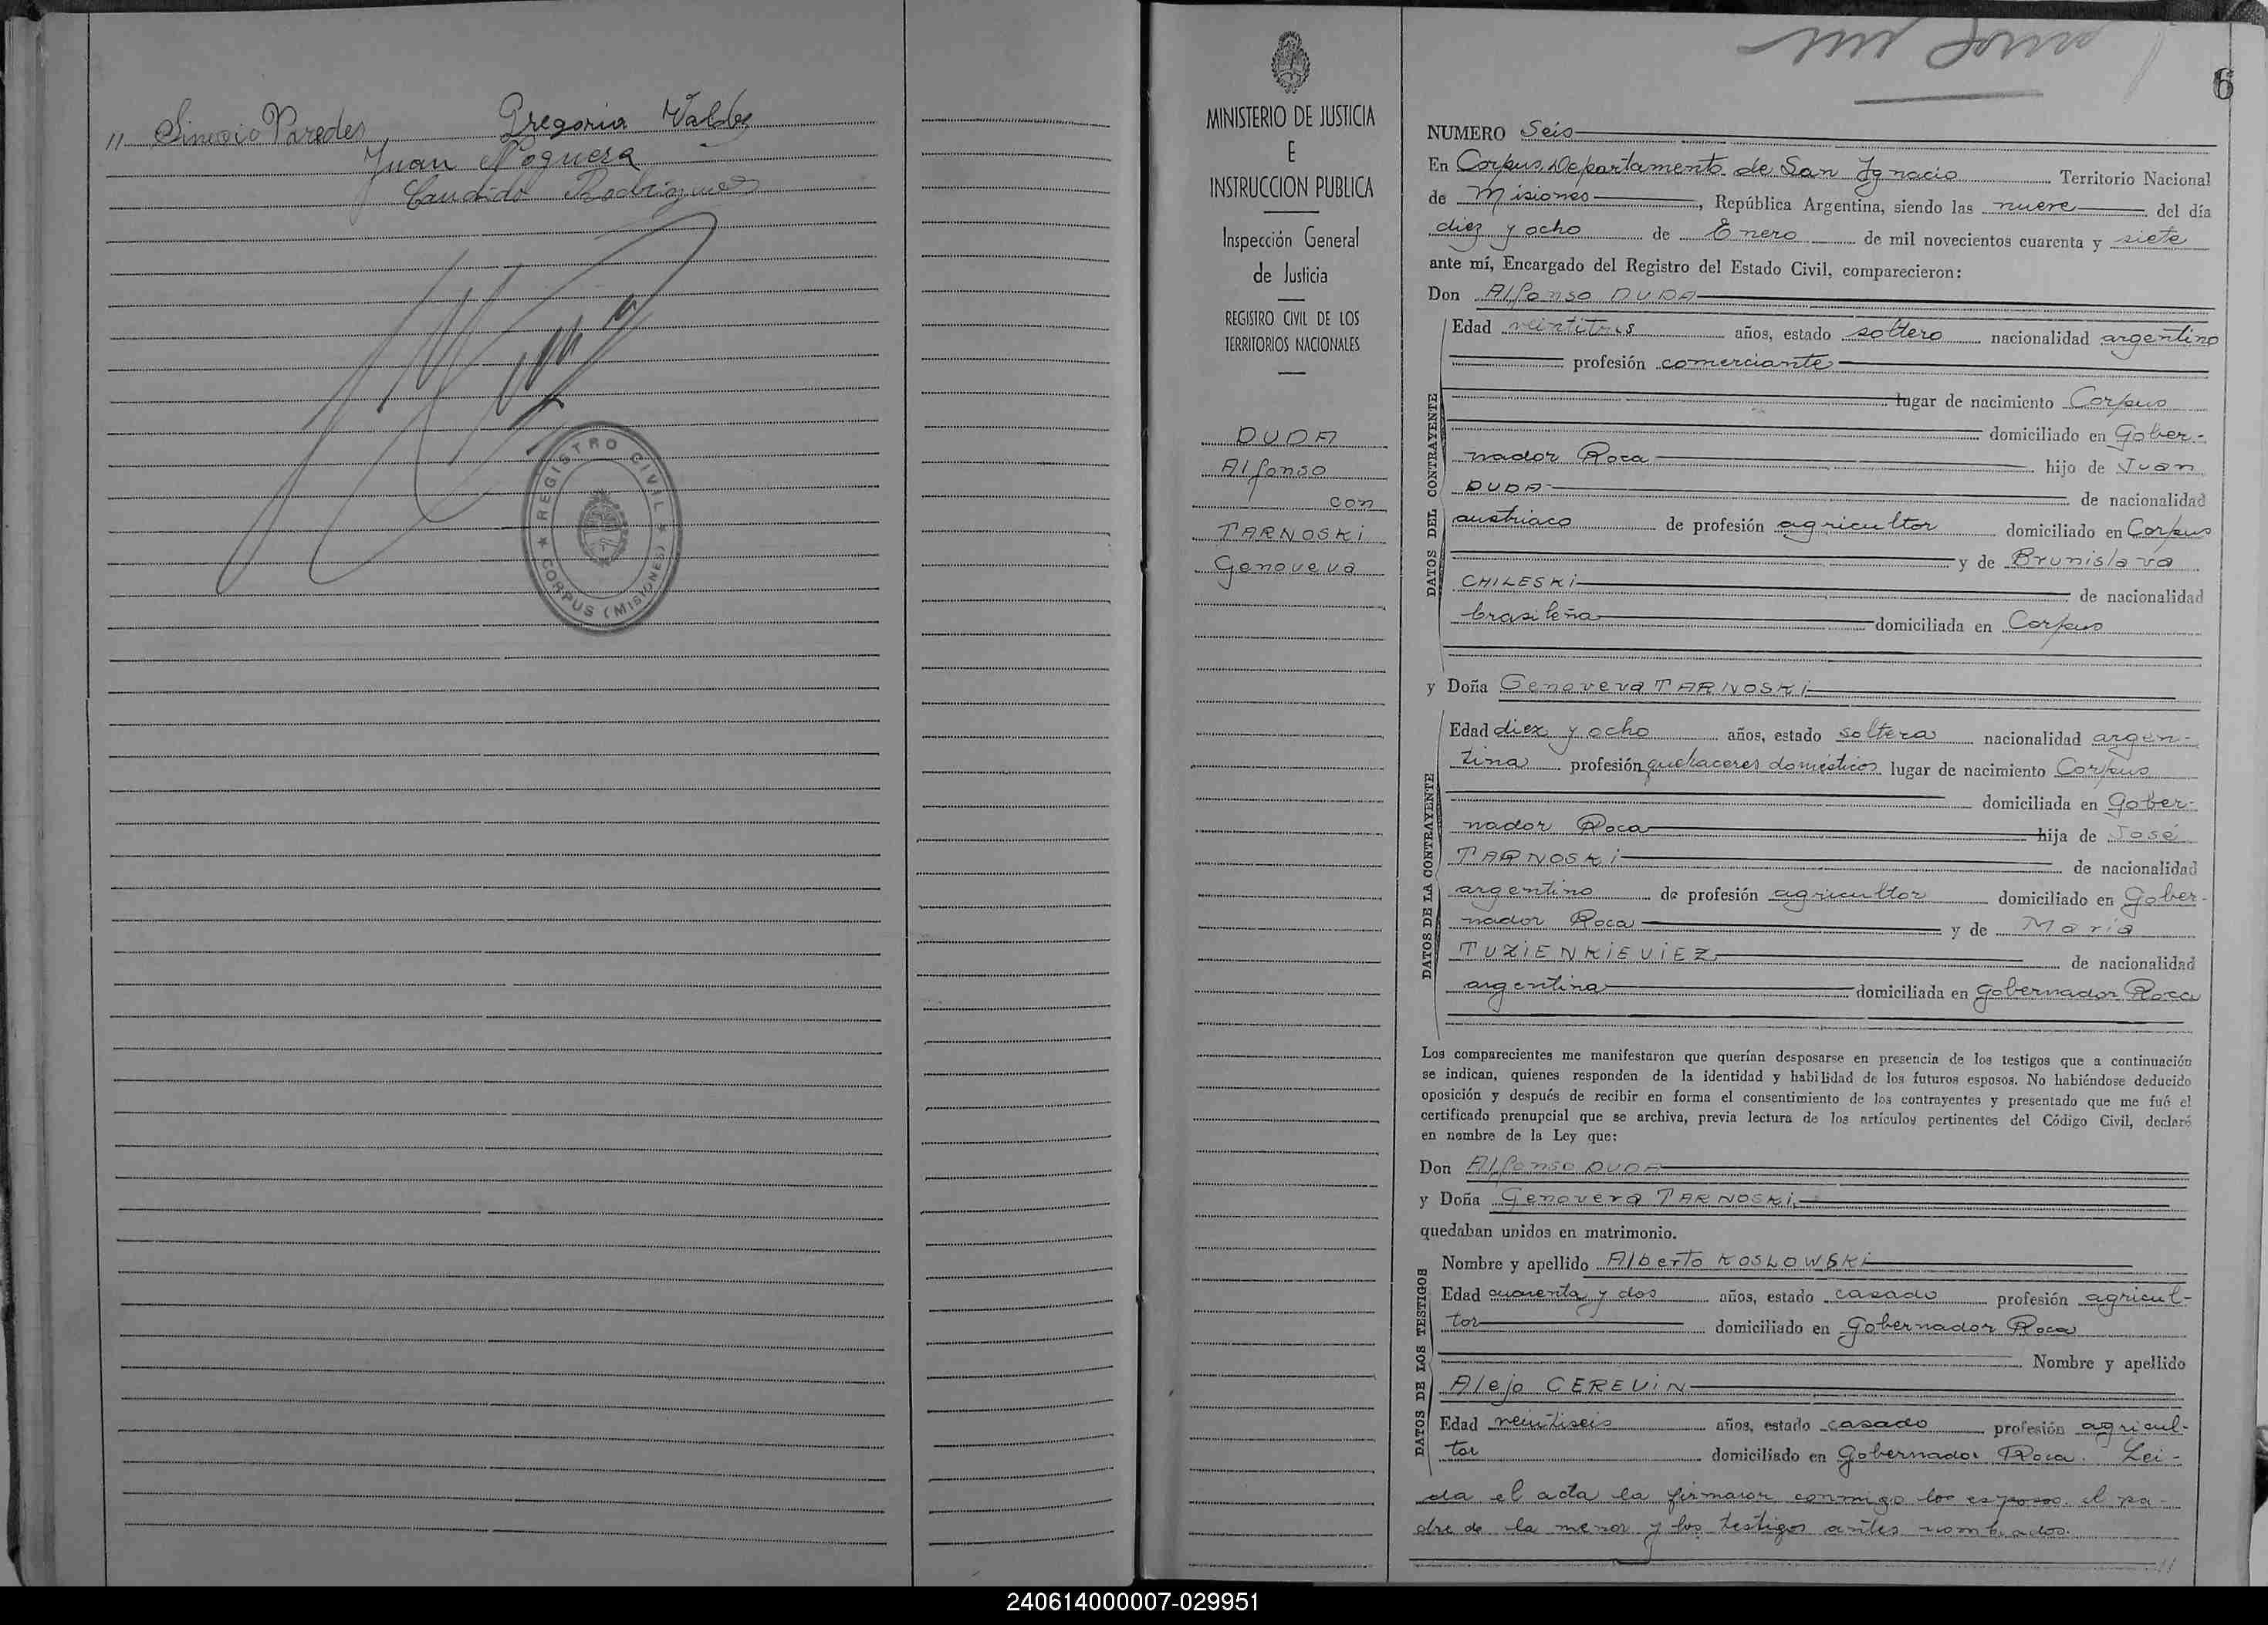 " Simeoio Paredes Gregoria Valdez
Juan Noguera
Candido Rodriguez
REGISTRO CIVIL
CORPUS (MISIONES)
6
MINISTERIO DE JUSTICIA
E
INSTRUCCION PUBLICA
Inspección General
de Justicia
REGISTRO CIVIL DE LOS
TERRITORIOS NACIONALES
DUDA
Alfonso
con
TARNOSKi
Genoveva
NUMERO Seis
En Corpus Departamento de San Ignacio Territorio Nacional
de Misiones, República Argentina, siendo las nueve del día
diez y ocho de Enero de mil novecientos cuarenta y siete
ante mí, Encargado del Registro del Estado Civil, comparecieron:
Don Alfonso DUDA
DATOS DEL CONTRAYENTE
Edad veintitres años, estado soltero nacionalidad argentino
profesión comerciante
lugar de nacimiento Corpus
domiciliado en Gober-
nador Roca hijo de Juan
DUDA de nacionalidad
austriaco de profesión agricultor domiciliado en Corpus
y de Brunislava
CHILESKi de nacionalidad
brasileña domiciliada en Corpus
y Doña Genoveva TARNOSKi
DATOS DE LA CONTRAYENTE
Edad diez y ocho años, estado soltera nacionalidad argen-
tina profesión quehaceres domésticos lugar de nacimiento Corpus
domiciliada en Gober-
nador Roca hija de José
TARNOSKi de nacionalidad
argentino de profesión agricultor domiciliado en Gober-
nador Roca y de Maria
TUZiENKiEViEZ de nacionalidad
argentina domiciliada en Gobernador Roca
Los comparecientes me manifestaron que querían desposarse en presencia de los testigos que a continuación
se indican, quienes responden de la identidad y habilidad de los futuros esposos. No habiéndose deducido
oposición y después de recibir en forma el consentimiento de los contrayentes y presentado que me fué el
certificado prenupcial que se archiva, previa lectura de los artículos pertinentes del Código Civil, declaré
en nombre de la Ley que:
Don Alfonso DUDA
y Doña Genoveva TARNOSKi
quedaban unidos en matrimonio.
DATOS DE LOS TESTIGOS
Nombre y apellido Alberto KOSLOWSKi
Edad cuarenta y dos años, estado casado profesión agricul-
tor domiciliado en Gobernador Roca
Nombre y apellido
Alejo CEREViN
Edad veintiseis años, estado casado profesión agricul-
tor domiciliado en Gobernador Roca. Lei-
da el acta la firmaron conmigo los esposos el pa-
dre de la menor y los testigos antes nombrados.
240614000007-029951